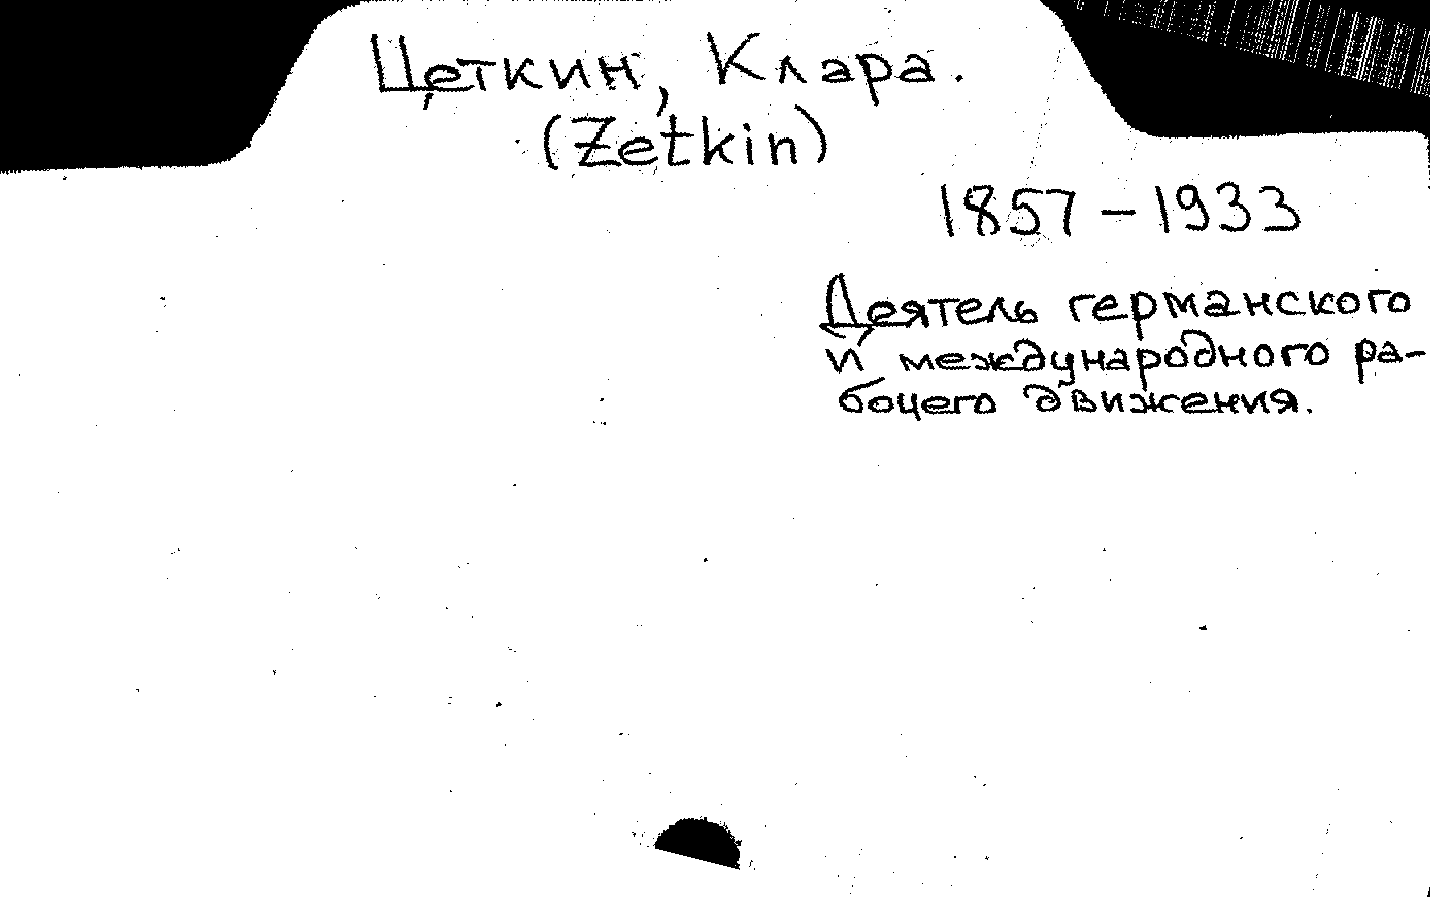 Цеткин, Клара.
(Zetkin)
1857 – 1933
Деятель германского
и международного ра-
бочего движения.